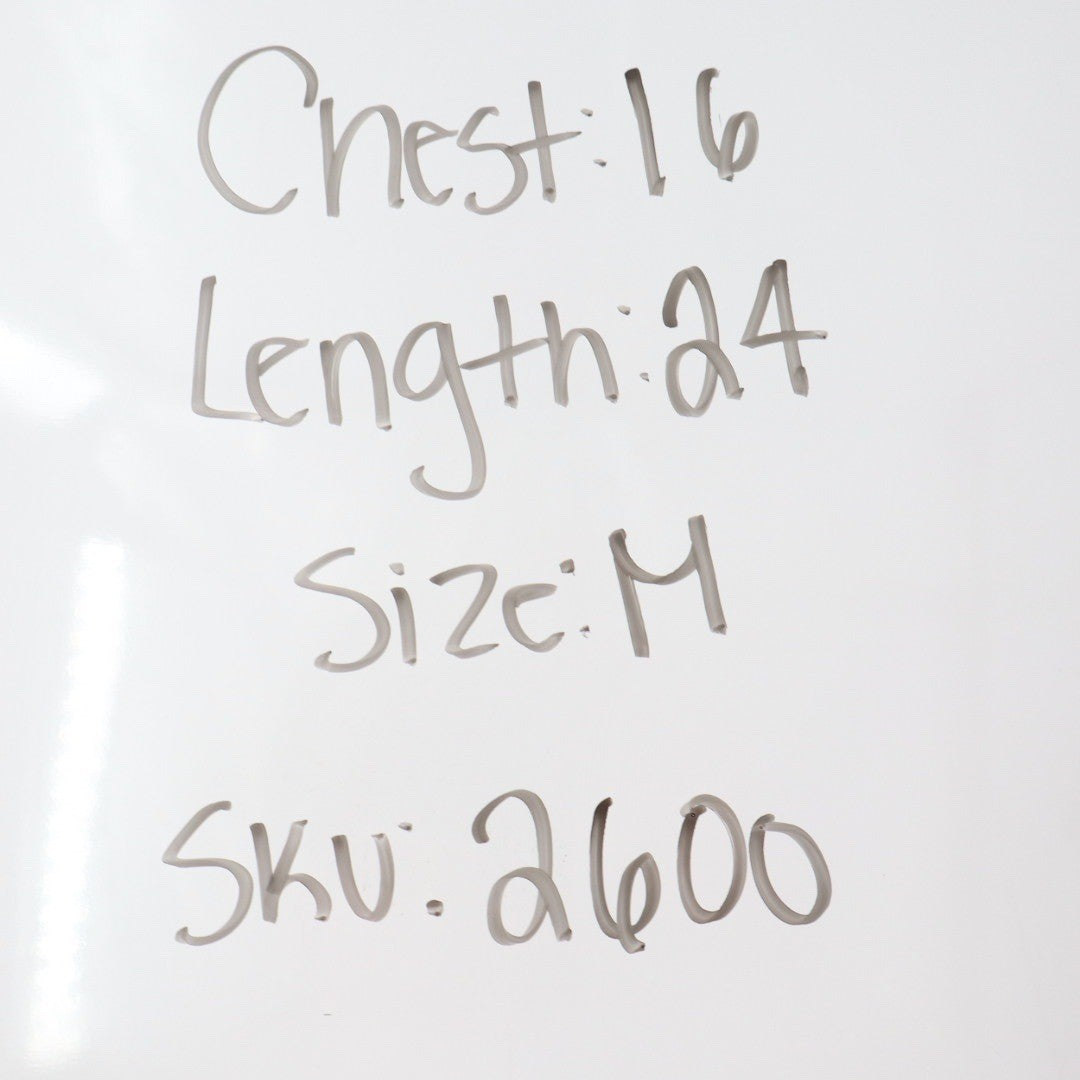 Chest: 16
Length: 24
Size: M
SKU: 2600